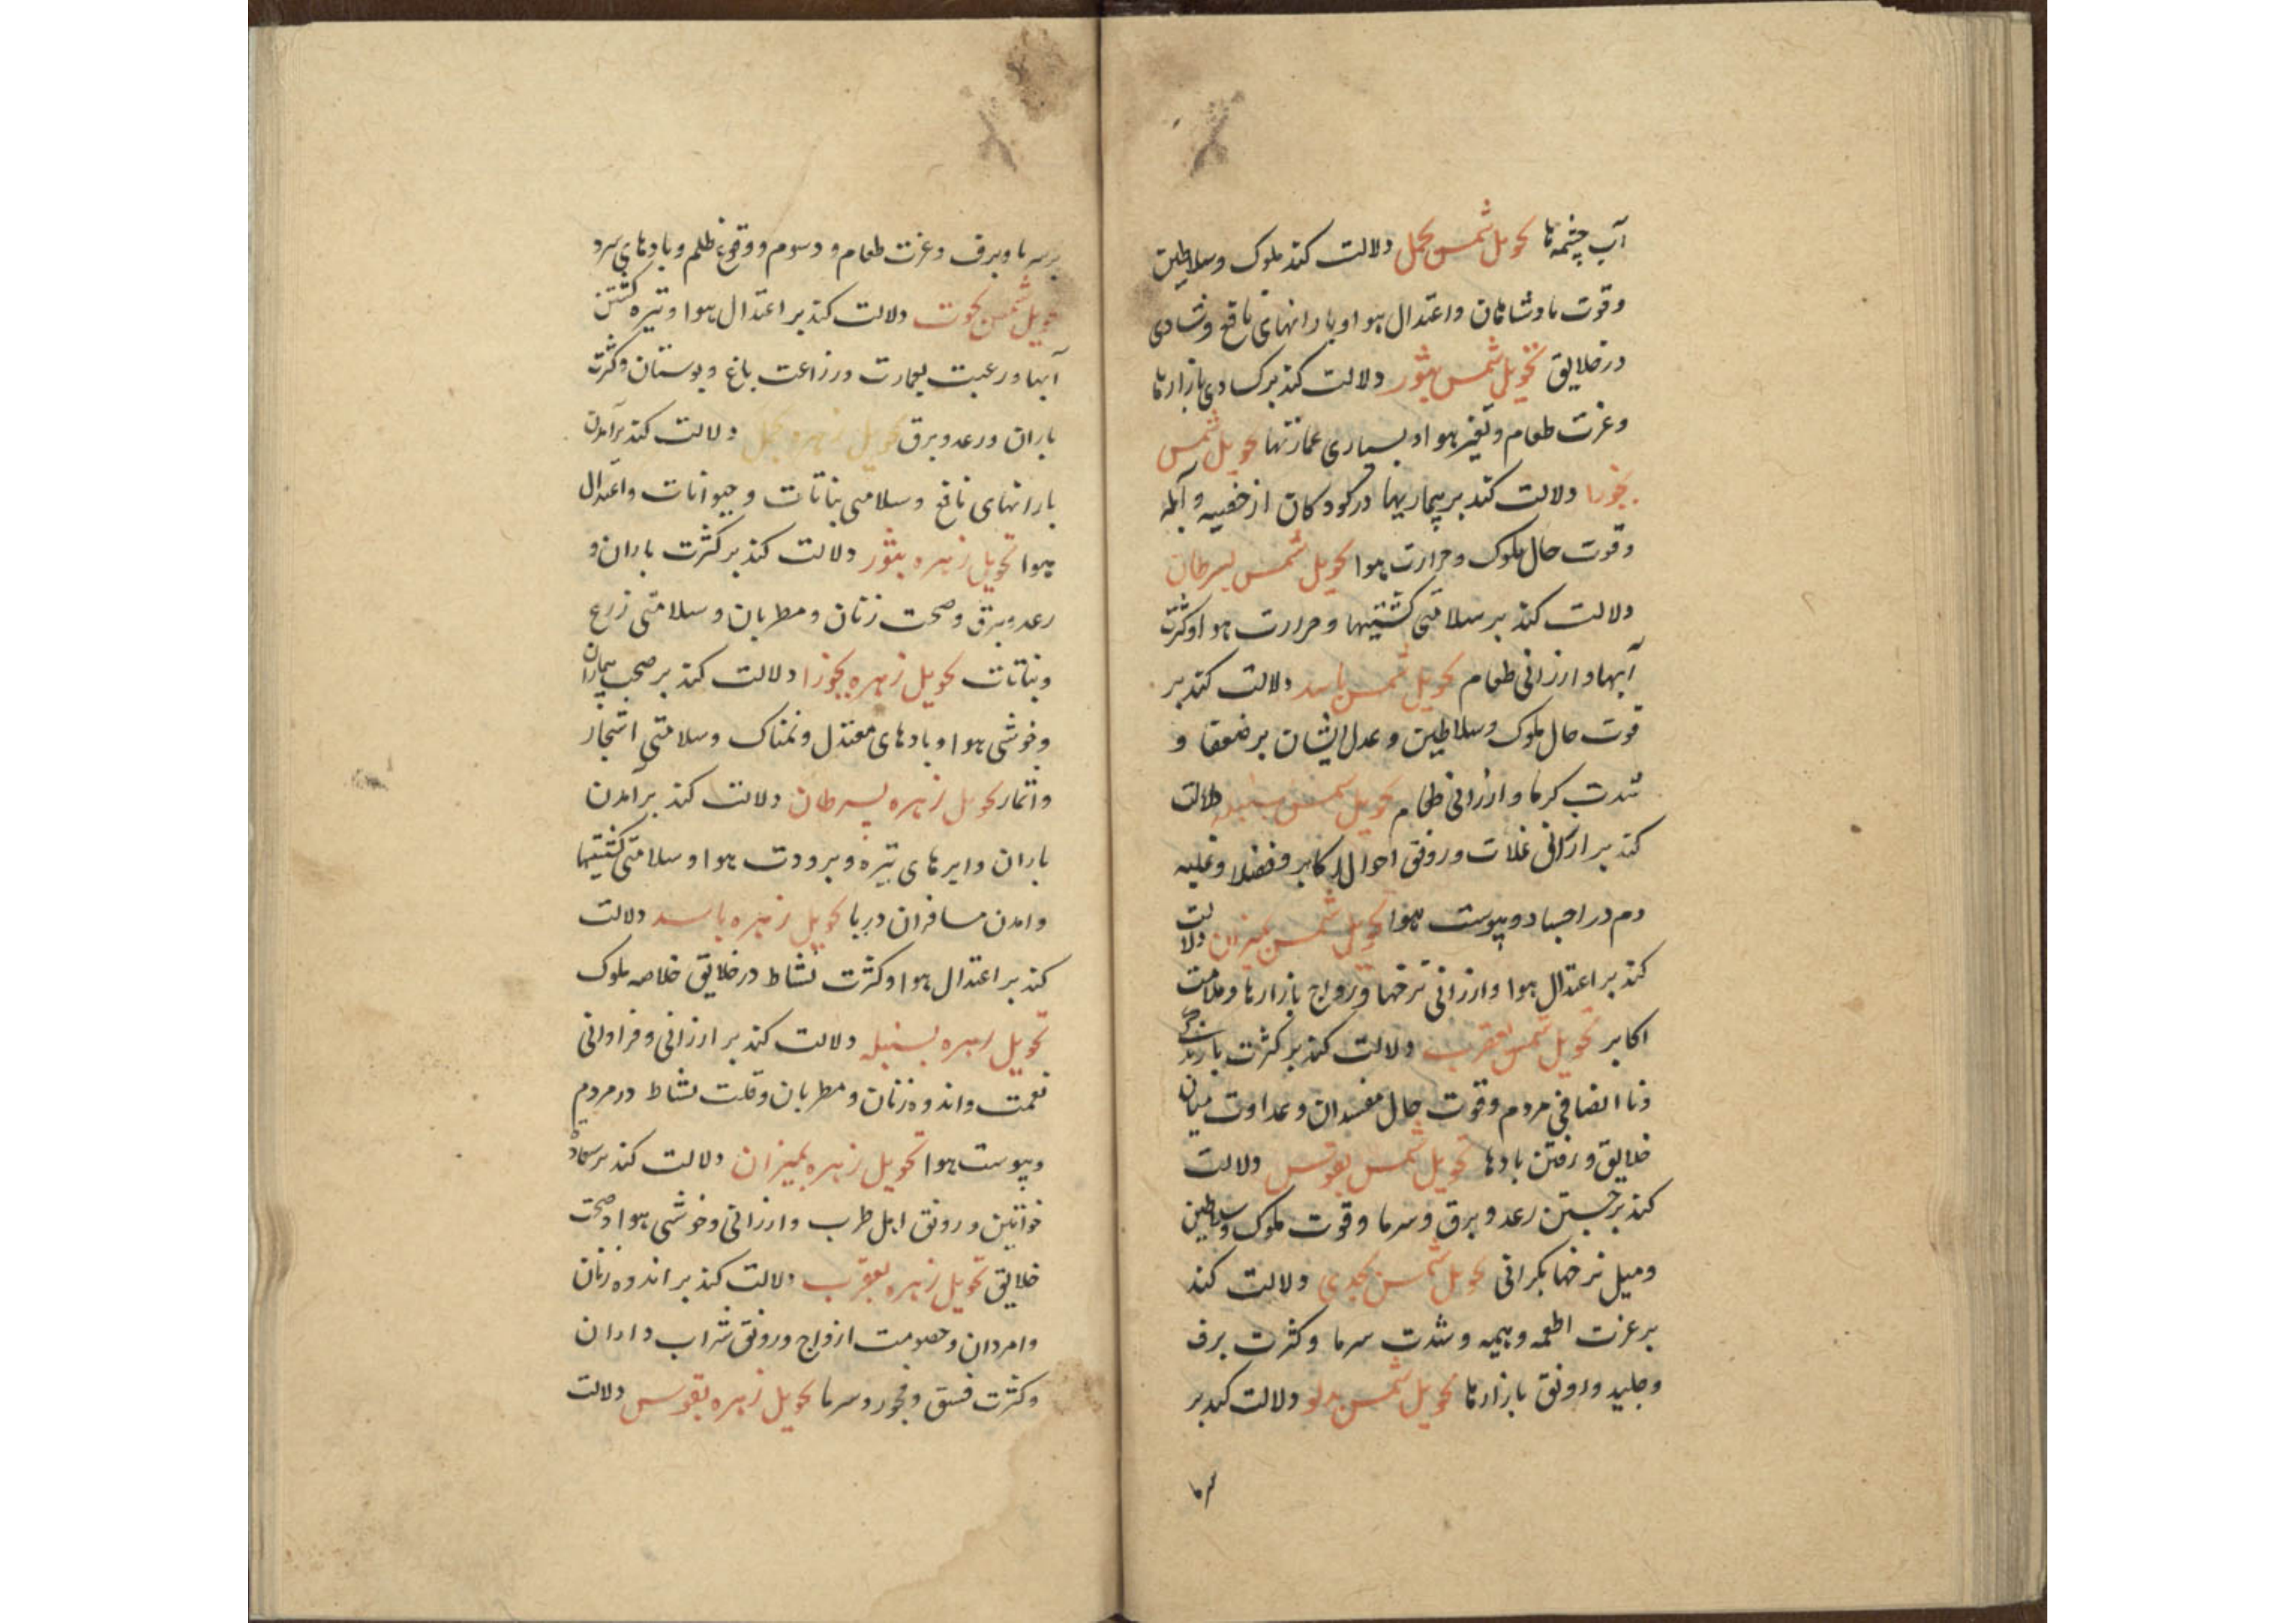 آب چشمه ها تحویل شمس بحمل دلالت کند ملوک و سلاطین
و قوت پادشاهان و اعتدال هوا و بارانهای نافع و شادی
در خلایق تحویل شمس بثور دلالت کند بر کسادی بازارها
و عزت طعام و تغیر هوا و بسیاری عمارتها تحویل شمس
بجوزا دلالت کند بر بیماریها در کودکان از حصبه و آبله
و قوت حال ملوک و حرارت هوا تحویل شمس بسرطان
دلالت کند بر سلامتی کشتیها و حرارت هوا و کثرت
آبها و ارزانی طعام تحویل شمس باسد دلالت کند بر
قوت حال ملوک و سلاطین و عدل ایشان بر ضعفا و
شدت کرما و ارزانی طعام تحویل شمس بسنبله دلالت
کند بر ارزانی غلات و رونق احوال اکابر و فضلا و غلبه
دم در اجساد و یبوست هوا تحویل شمس بمیزان دلالت
کند بر اعتدال هوا و ارزانی نرخها و رواج بازارها و ملامت
اکابر تحویل شمس بعقرب دلالت کند بر کثرت
و نا انصافی مردم و قوت حال مفسدان و عداوت میان
خلایق و رفتن بادها تحویل شمس بقوس دلالت
کند بر جستن رعد و برق و سرما و قوت ملوک و سلاطین
و میل نرخها بکرانی تحویل شمس بجدی دلالت کند
بر عزت اطعمه و هیمه و شدت سرما و کثرت برف
و جلید و رونق بازارها تحویل شمس بدلو دلالت کند بر
سرما
بر سرما و برف و عزت طعام و دسوم و وقوع ظلم و بادهای سرد
تحویل شمس بحوت دلالت کند بر اعتدال هوا و تیره کشتن
آبها و رغبت بعمارت و زراعت باغ و بوستان و کثرت
باران و رعد و برق تحویل زهره بحمل دلالت کند بر آمدن
بارانهای نافع و سلامتی نباتات و حیوانات و اعتدال
هوا تحویل زهره بثور دلالت کند بر کثرت باران و
رعد و برق و صحت زنان و مطربان و سلامتی زرع
و نباتات تحویل زهره بجوزا دلالت کند بر صحت بیماران
و خوشی هوا و بادهای معتدل و نمناک و سلامتی اشجار
و اثمار تحویل زهره بسرطان دلالت کند بر آمدن
باران و ابرهای تیره و برودت هوا و سلامتی کشتیها
و امدن مسافران دریا تحویل زهره باسد دلالت
کند بر اعتدال هوا و کثرت نشاط در خلایق خلاصه ملوک
تحویل زهره بسنبله دلالت کند بر ارزانی و فراوانی
نعمت و اندوه زنان و مطربان و قلت نشاط در مردم
و یبوست هوا تحویل زهره بمیزان دلالت کند بر
خواتین و رونق اهل طرب و ارزانی و خوشی هوا و صحت
خلایق تحویل زهره بعقرب دلالت کند بر اندوه زنان
و امردان و خصومت ازواج و رونق شراب داران
و کثرت فسق و فجور و سرما تحویل زهره بقوس دلالت